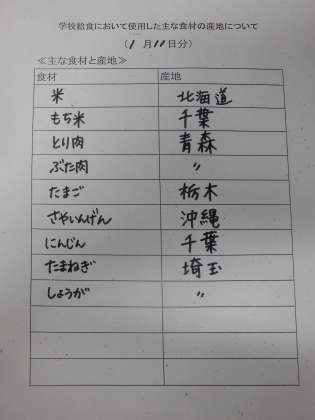 学校給食において使用した主な食材の産地について
(1月11日分)
≪主な食材と産地≫
食材 産地
米 北海道
もち米 千葉
とり肉 青森
ぶた肉 〃
たまご 栃木
さやいんげん 沖縄
にんじん 千葉
たまねぎ 埼玉
しょうが 〃